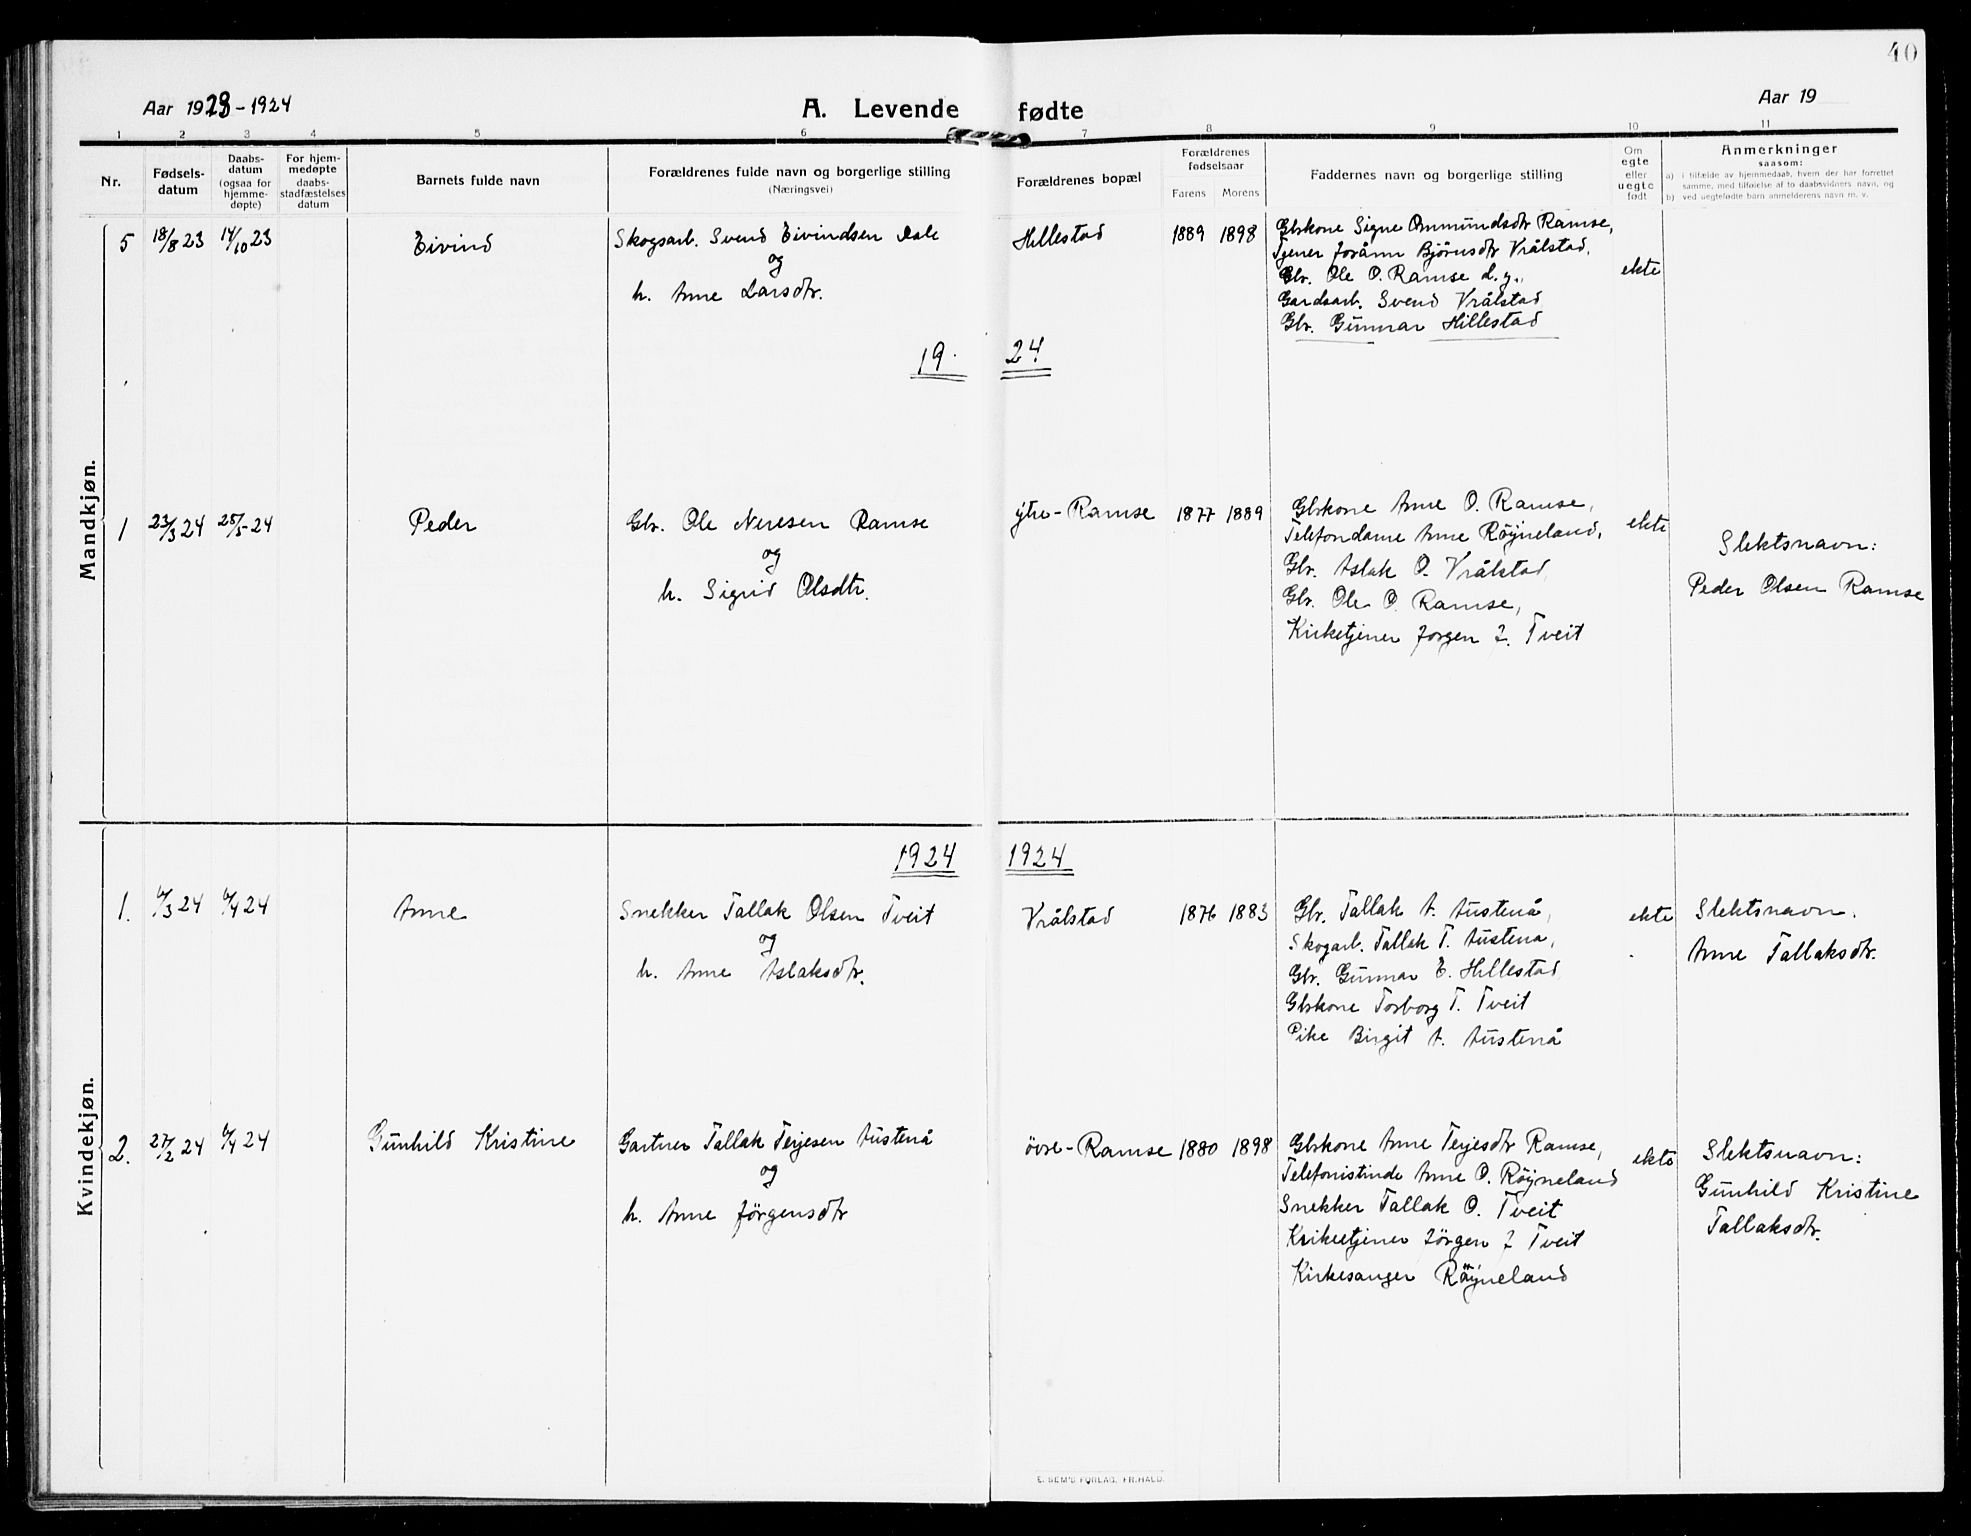 40
Aar 1923-1924
A. Levende fødte
Aar 19
1 2 3 4 5 6 7 8 9 10 11
Nr.
Fødsels-
datum
Daabs-
datum
(ogsaa for
hjemme-
døpte)
For hjem-
medøpte
daabs-
stadfæstelses
datum
Barnets fulde navn
Forældrenes fulde navn og borgerlige stilling
(Næringsvei)
Forældrenes bopæl
Forældrenes
fødselsaar
Farens Morens
Faddernes navn og borgerlige stilling
Om
egte
eller
uegte
født
Anmerkninger
saasom:
a) i tilfælde av hjemmedaab, hvem der har forrettet
samme, med tilføielse af to daabsvidners navn, og
b) ved uegtefødte barn anmelderens navn m. v.
Mandkjøn.
5 18/8 23 14/10 23 Eivind
Skogsarb. Svend Eivindsen Dale
og
h. Anne Larsdtr.
Hillestad 1889 1898
Gbrkone Signe Ommundsdtr Ramse,
Tjener Jorånn Bjørnsdtr Vrålstad,
Gbr. Ole O. Ramse d.y.,
Gardsarb. Svend Vrålstad
Gbr. Gunnar Hillestad
ekte
19 24
1 23/3 24 25/5-24 Peder
Gbr. Ole Neresen Ramse
og
h. Sigrid Olsdtr.
ytre-Ramse 1877 1889
Gbrkone Anne O. Ramse,
Telefondame Anne Røyneland,
Gbr. Aslak O. Vrålstad,
Gbr. Ole O. Ramse,
Kirketjener Jørgen J. Tveit
ekte
Slektsnavn:
Peder Olsen Ramse
Kvindekjøn.
1924 1924
1. 6/3 24 6/4 24 Anne
Snekker Tallak Olsen Tveit
og
h. Anne Aslaksdtr.
Vrålstad 1876 1883
Gbr. Tallak A. Austenå,
Skogarb. Tallak T. Austenå,
Gbr. Gunnar E. Hillestad
Gbrkone Torborg T. Tveit
Pike Birgit A. Austenå
ekte
Slektsnavn.
Anne Tallaksdtr.
2. 27/2 24 6/4 24 Gunhild Kristine
Gartner Tallak Terjesen Austenå
og
h. Anne Jørgensdtr
övre-Ramse 1880 1898
Gbrkone Anne Terjesdtr Ramse,
Telefonistinde Anne O. Røyneland
Snekker Tallak O. Tveit
Kirketjener Jörgen J Tveit
Kirkesanger Röyneland
ekte
Slektsnavn:
Gunhild Kristine
Tallaksdtr.
E. SEM'S FORLAG, FR.HALD.